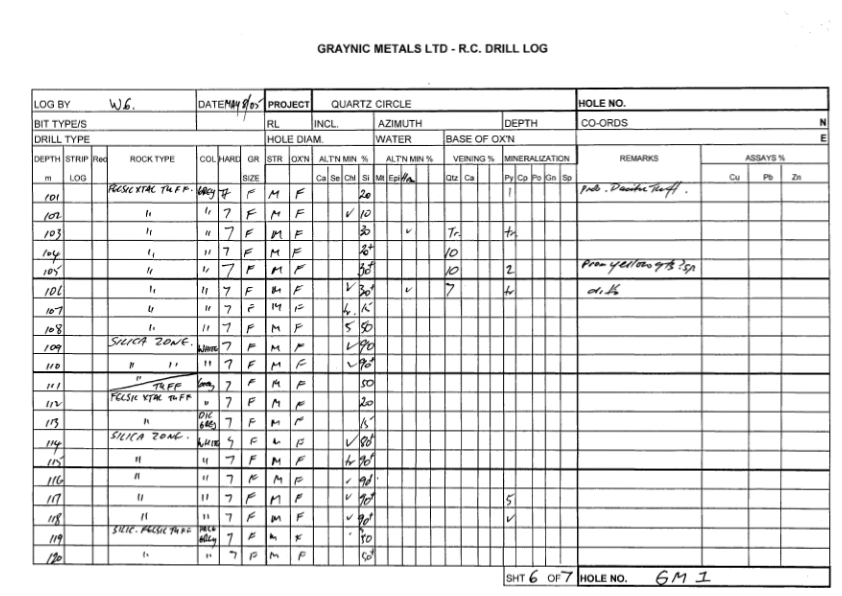 GRAYNIC METALS LTD - R.C. DRILL LOG
LOG BY WG. DATE MAY 8/05 PROJECT QUARTZ CIRCLE HOLE NO.
BIT TYPE/S RL INCL. AZIMUTH DEPTH CO-ORDS N
DRILL TYPE HOLE DIAM. WATER BASE OF OX'N E
DEPTH STRIP Rec ROCK TYPE COL HARD GR STR OX'N ALT'N MIN % ALT'N MIN % VEINING % MINERALIZATION REMARKS ASSAYS %
m LOG SIZE Ca Se Chl Si Mt Epi Hm Qtz Ca Py Cp Po Gn Sp Cu Pb Zn
101 FELSIC XTAL TUFF. GREY 7 F M F 20 1 Prob. Dacitic Tuff.
102 " " 7 F M F ✓ 10
103 " " 7 F M F 30 ✓ Tr. tr.
104 " " 7 F M F 20+ 10
105 " " 7 F M F 30+ 10 2 From yellow qtz ?sp
106 " " 7 F M F ✓ 30+ ✓ 7 tr
107 " " 7 F M F tr. 15
108 " " 7 F M F 5 50
109 SILICA ZONE. WHITE 7 F M F ✓ 90
110 " " " 7 F M F ✓ 90+
111 " TUFF Grey 7 F M F 50
112 FELSIC XTAL TUFF " 7 F M F 20
113 " GREY 7 F M F 15
114 SILICA ZONE. WHITE F F ✓ 80+
115 " " 7 F M F tr 90+
116 " " 7 F M F ✓ 90+
117 " " 7 F M F ✓ 90+ 5
118 " " 7 F M F ✓ 90+ ✓
119 SILIC. FELSIC TUFF GREY 7 F M F 50
120 " " 7 F M F 50+
SHT 6 OF 7 HOLE NO. GM 1